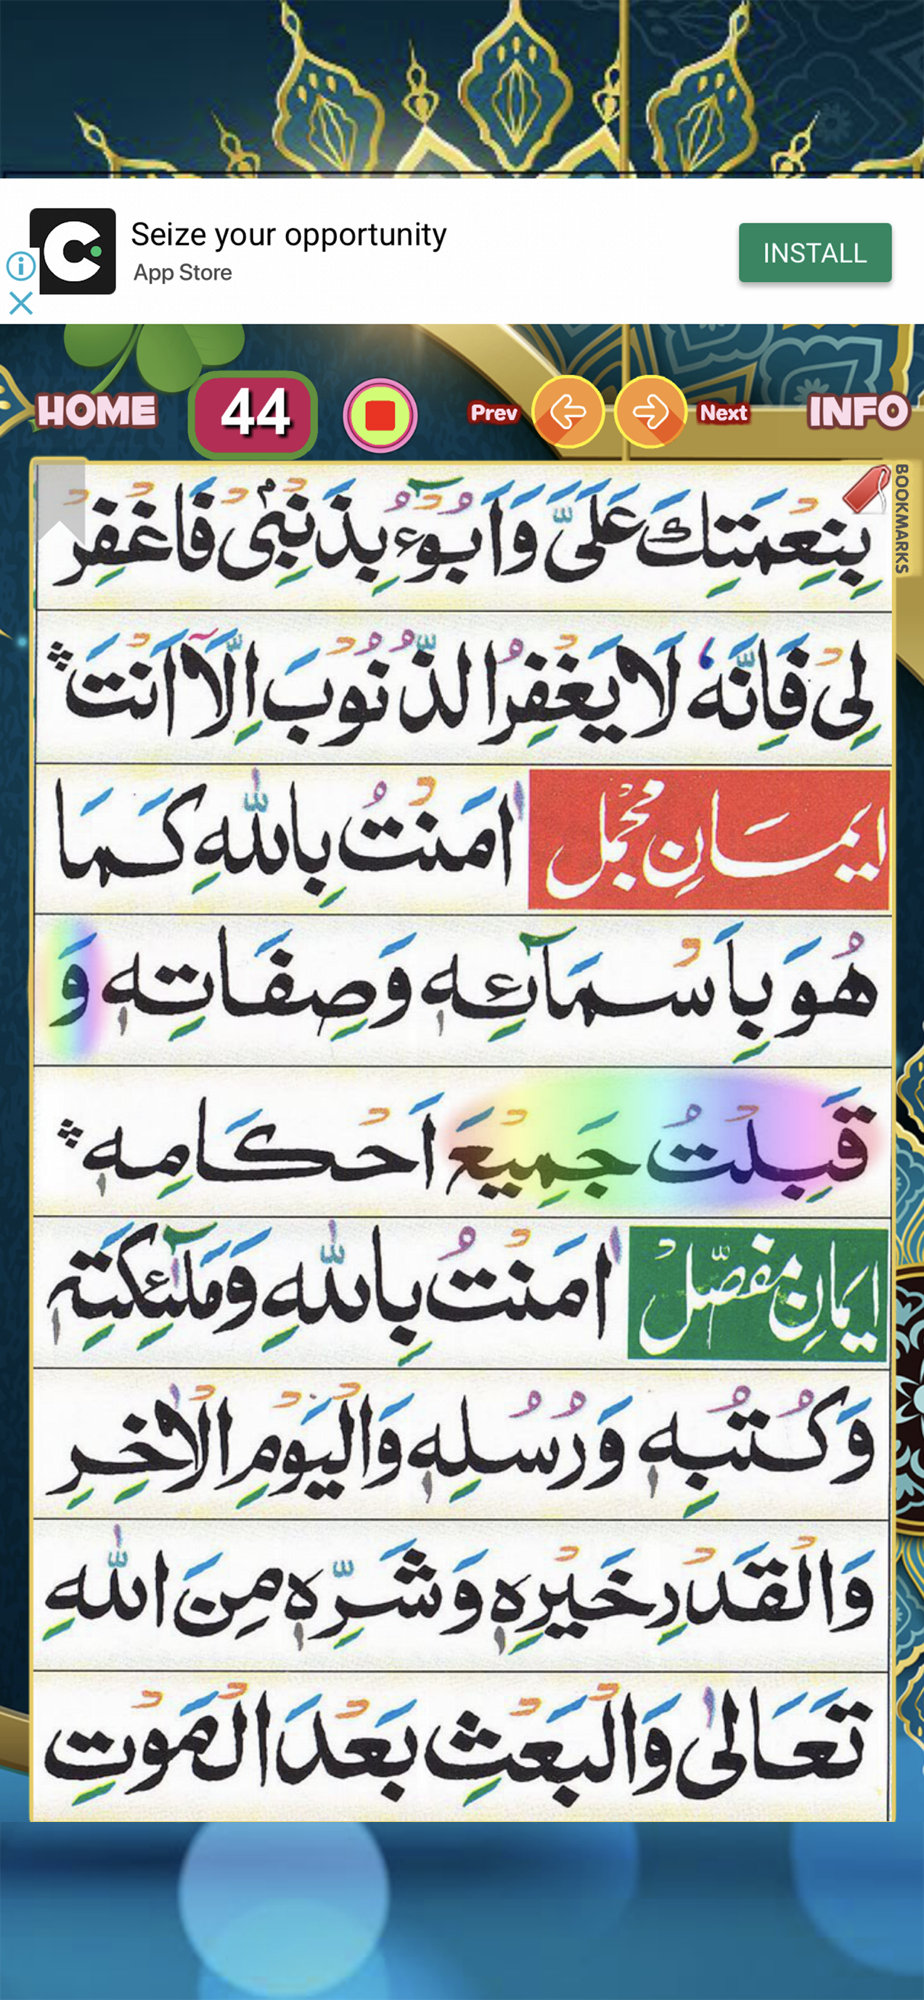 Seize your opportunity
App Store
INSTALL
HOME
44
Prev
Next
INFO
BOOKMARKS
بِنِعْمَتِكَ عَلَيَّ وَاَبُوْٓءُ بِذَنْۢبِيْ فَاغْفِرْ
لِيْ فَاِنَّهٗ لَا يَغْفِرُ الذُّنُوْبَ اِلَّآ اَنْتَ
ایمانِ مُجْمَل اٰمَنْتُ بِاللّٰهِ كَمَا
هُوَ بِاَسْمَآئِهٖ وَصِفَاتِهٖ وَ
قَبِلْتُ جَمِيْعَ اَحْكَامِهٖ
ایمانِ مفصّلْ اٰمَنْتُ بِاللّٰهِ وَمَلٰٓئِكَتِهٖ
وَكُتُبِهٖ وَرُسُلِهٖ وَالْيَوْمِ الْاٰخِرِ
وَالْقَدْرِ خَيْرِهٖ وَشَرِّهٖ مِنَ اللّٰهِ
تَعَالٰى وَالْبَعْثِ بَعْدَ الْمَوْتِ